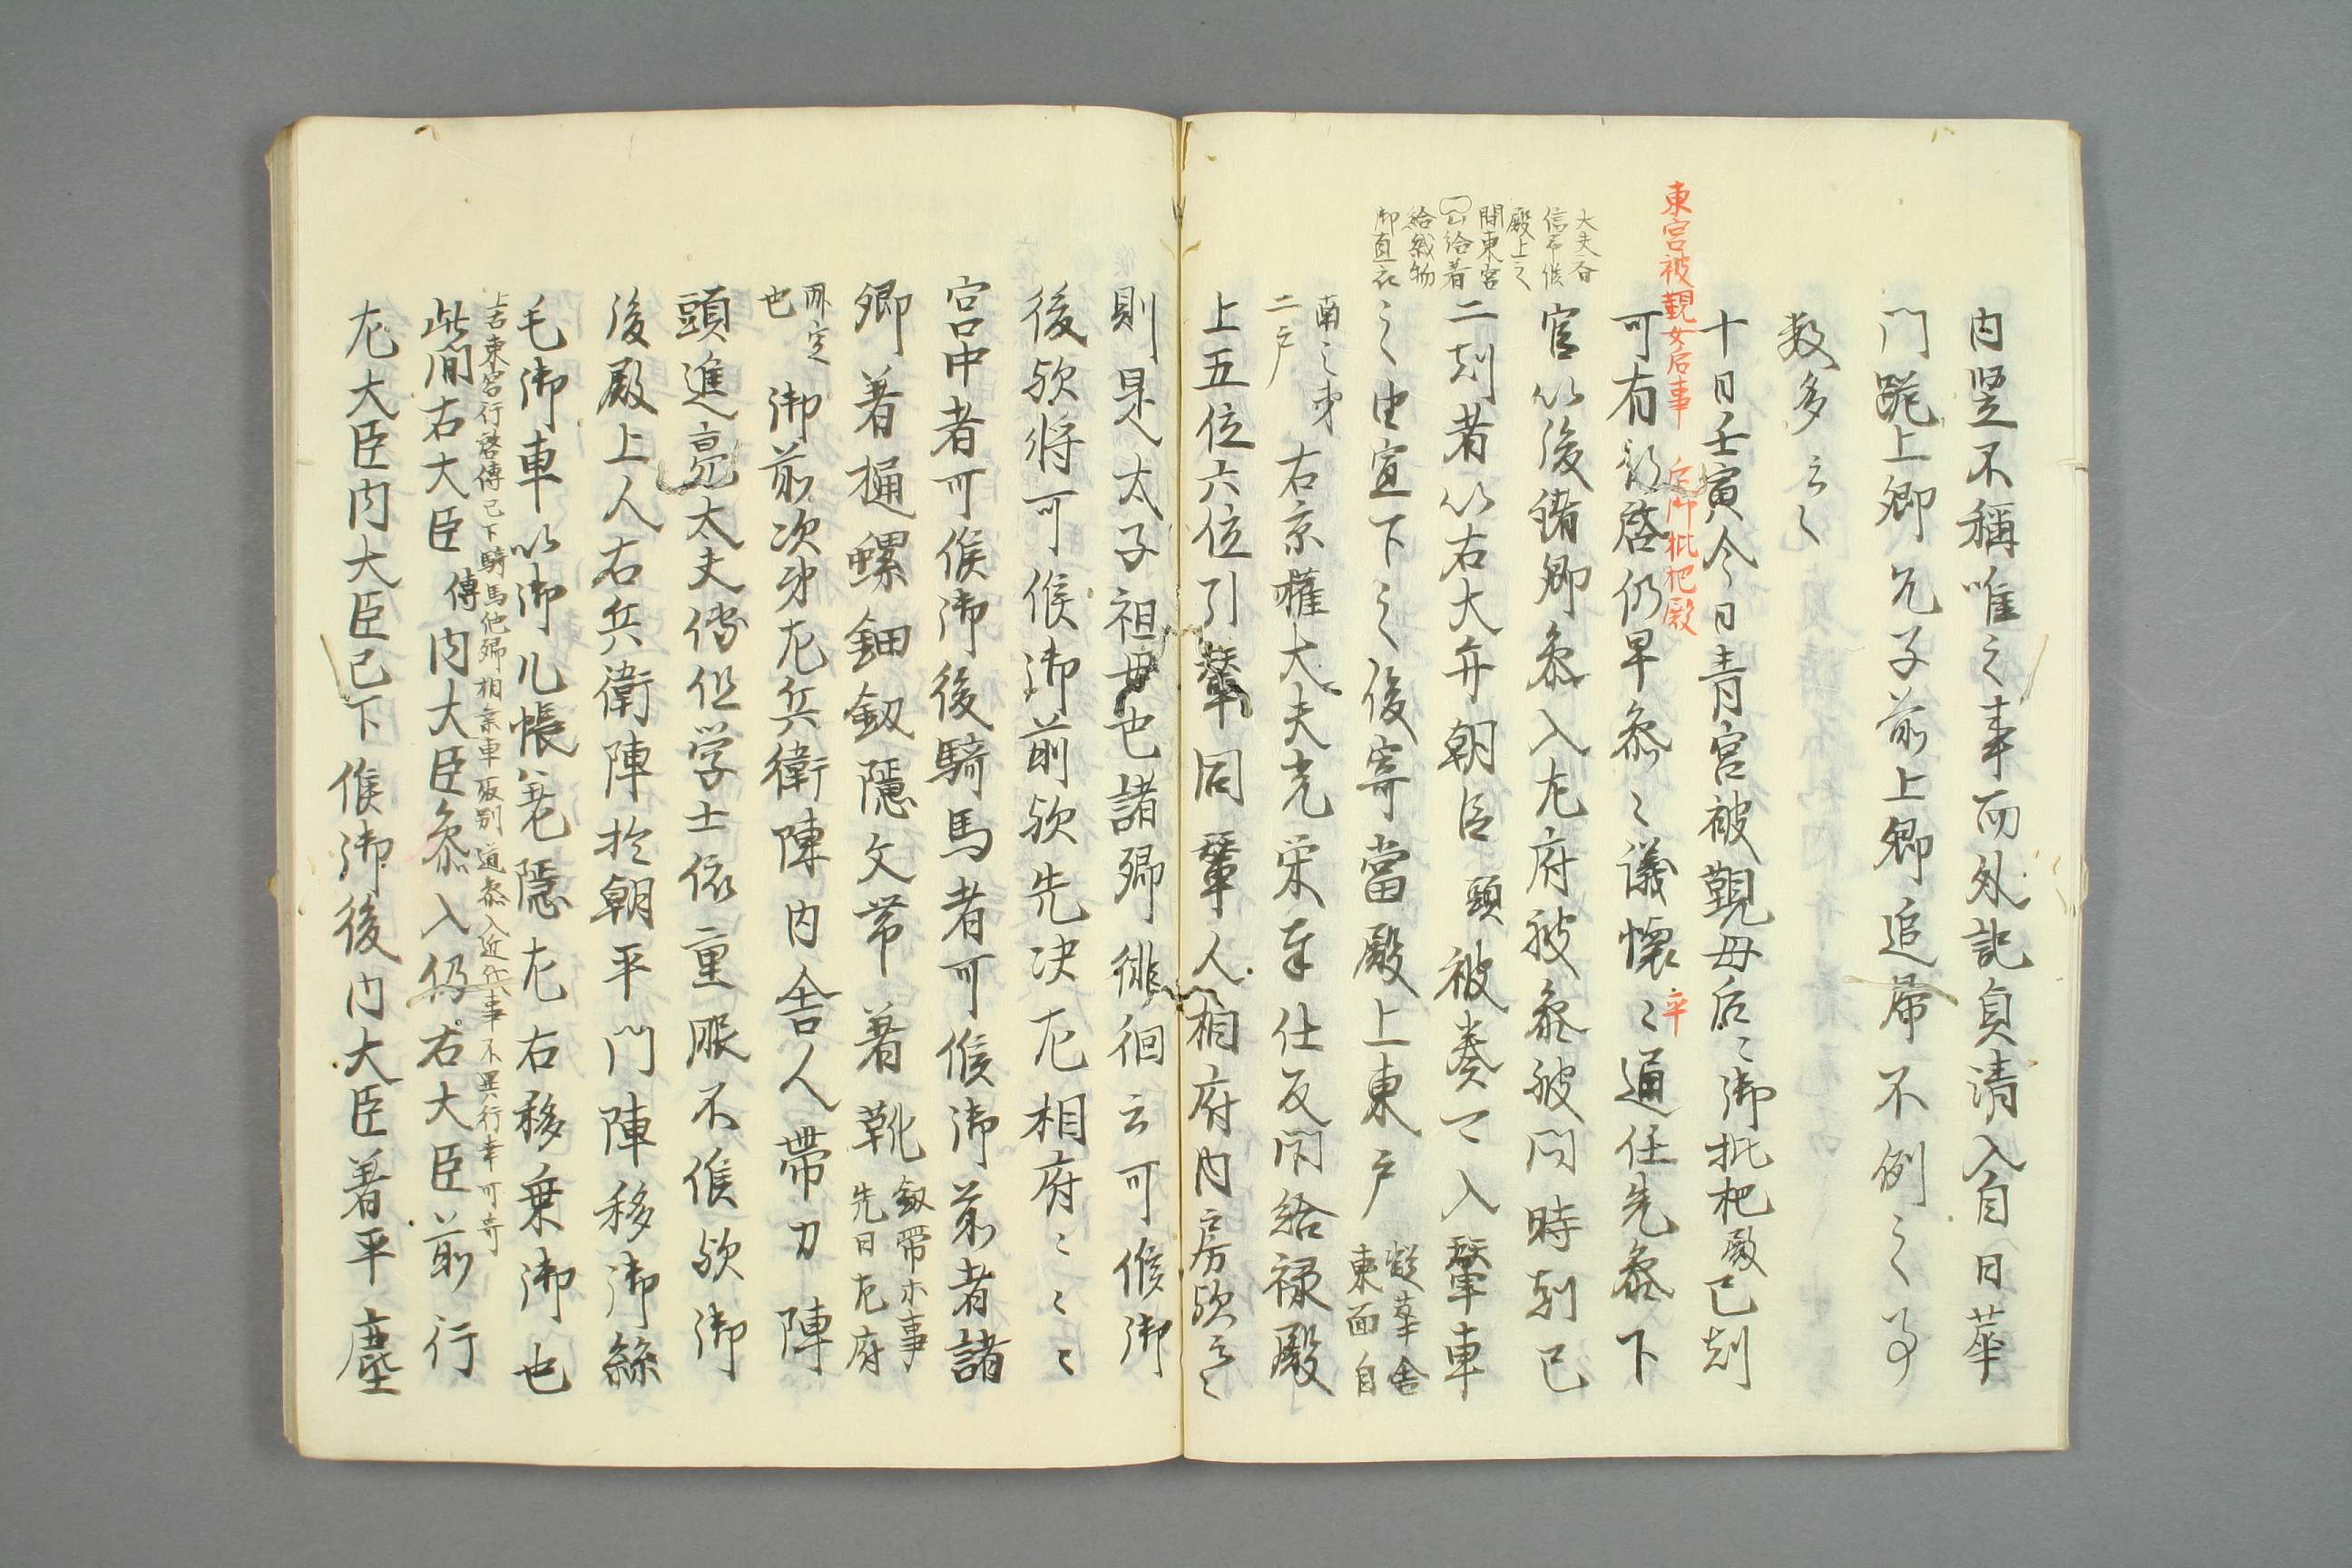 内竪不稱唯之事而外記貞清入自日華
門跪上卿兀子前上卿追帰不例之々事
数多云々
東宮被覲女后事 后御枇杷殿
十日壬寅今日青宮被覲母后々御枇杷殿已剋
可有行啓仍早参々議懐々通任先参下
平
官以後諸卿参入左府被参被問時剋已
大夫斉
信卿候
殿上之
間東宮
出給着
給織物
御直衣
二剋者以右大弁朝臣頭被奏可入輦車
之由宣下之後寄當殿上東戸凝華舎
東面自
南之第
二戸右京権大夫光栄奉仕反閇給禄殿
上五位六位引輦同輦人相府内房歟云々
則是太子祖母也諸卿徘徊云可候御
後歟将可候御前歟先决左相府々々
宮中者可候御後騎馬者可候御前者諸
卿着樋螺鈿釼隠文帯著靴釼帯等事
先日左府
所定
也御前次第左兵衛陣内舎人帯刀陣
頭進亮太夫傅但学士依重服不候歟御
後殿上人右兵衛陣於朝平門陣移御絲
毛御車以御几帳𦾔隠左右移乗御也
上古東宮行啓傅已下騎馬他卿相乗車取別道参入近代事不異行幸可奇
此間右大臣傅内大臣参入仍右大臣前行
左大臣内大臣已下候御後内大臣着平塵